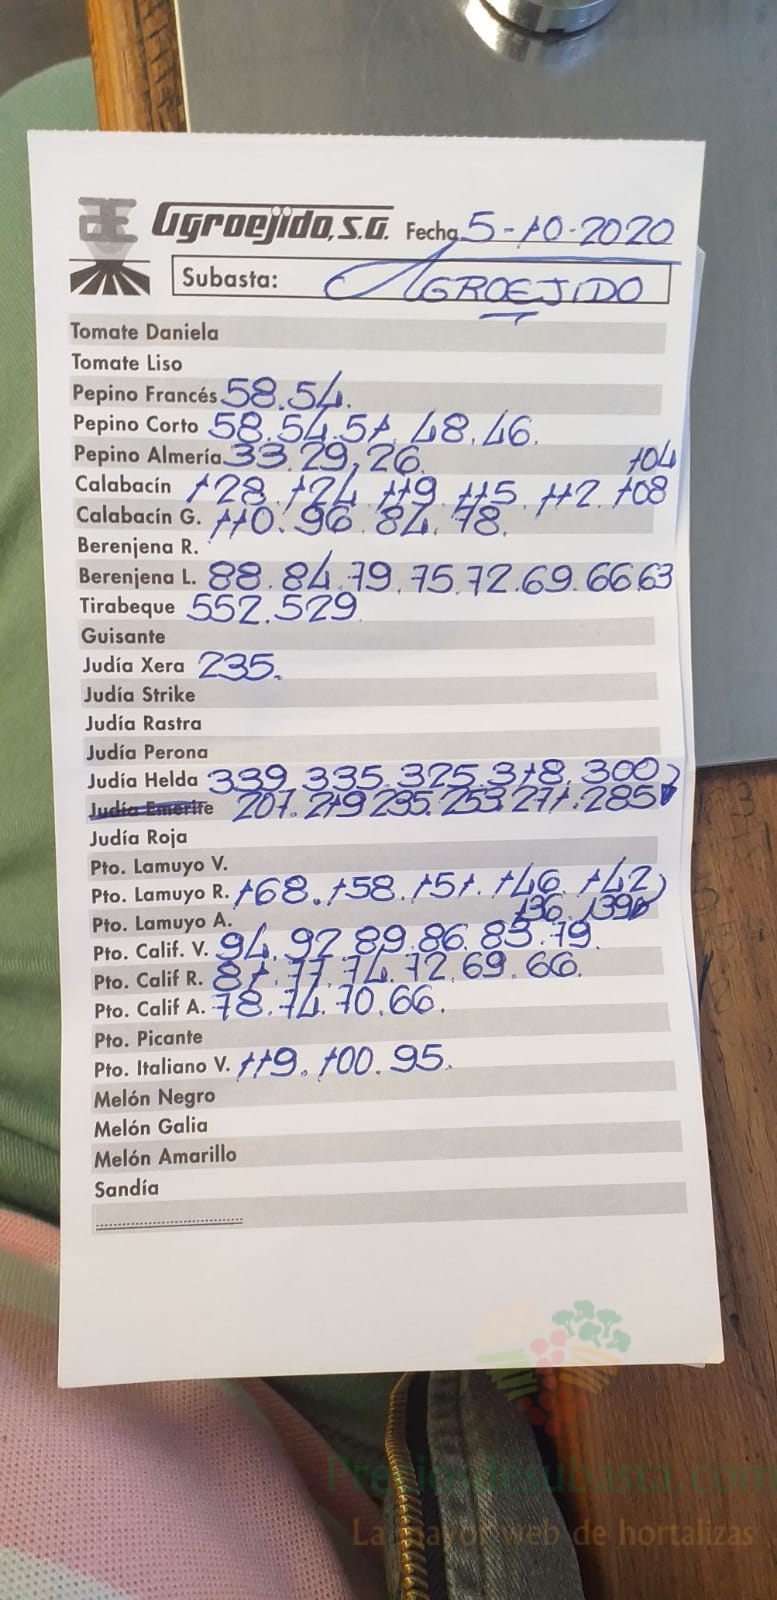 Agroejido, S.A. Fecha 5-10-2020
Subasta: AGROEJIDO
Tomate Daniela
Tomate Liso
Pepino Francés 58.54.
Pepino Corto 58.54.51.48.46.
Pepino Almería 33.29,26. 104
Calabacín 128.124.119.115.112.108
Calabacín G. 110.96.84.78.
Berenjena R.
Berenjena L. 88.84.79.75.72.69.66.63
Tirabeque 552.529
Guisante
Judía Xera 235.
Judía Strike
Judía Rastra
Judía Perona
Judía Helda 339.335.325.318.300
Judía Emerite 207.219 235.253.271.285
Judía Roja
Pto. Lamuyo V.
Pto. Lamuyo R. 168.158.151.146.142
Pto. Lamuyo A. 136.139
Pto. Calif. V. 94.92 89.86.83.79.
Pto. Calif R. 81.77.74.72.69.66.
Pto. Calif A. 78.74.70.66.
Pto. Picante
Pto. Italiano V. 119.100.95.
Melón Negro
Melón Galia
Melón Amarillo
Sandía
Preciosdesubasta.com
La mayor web de hortalizas